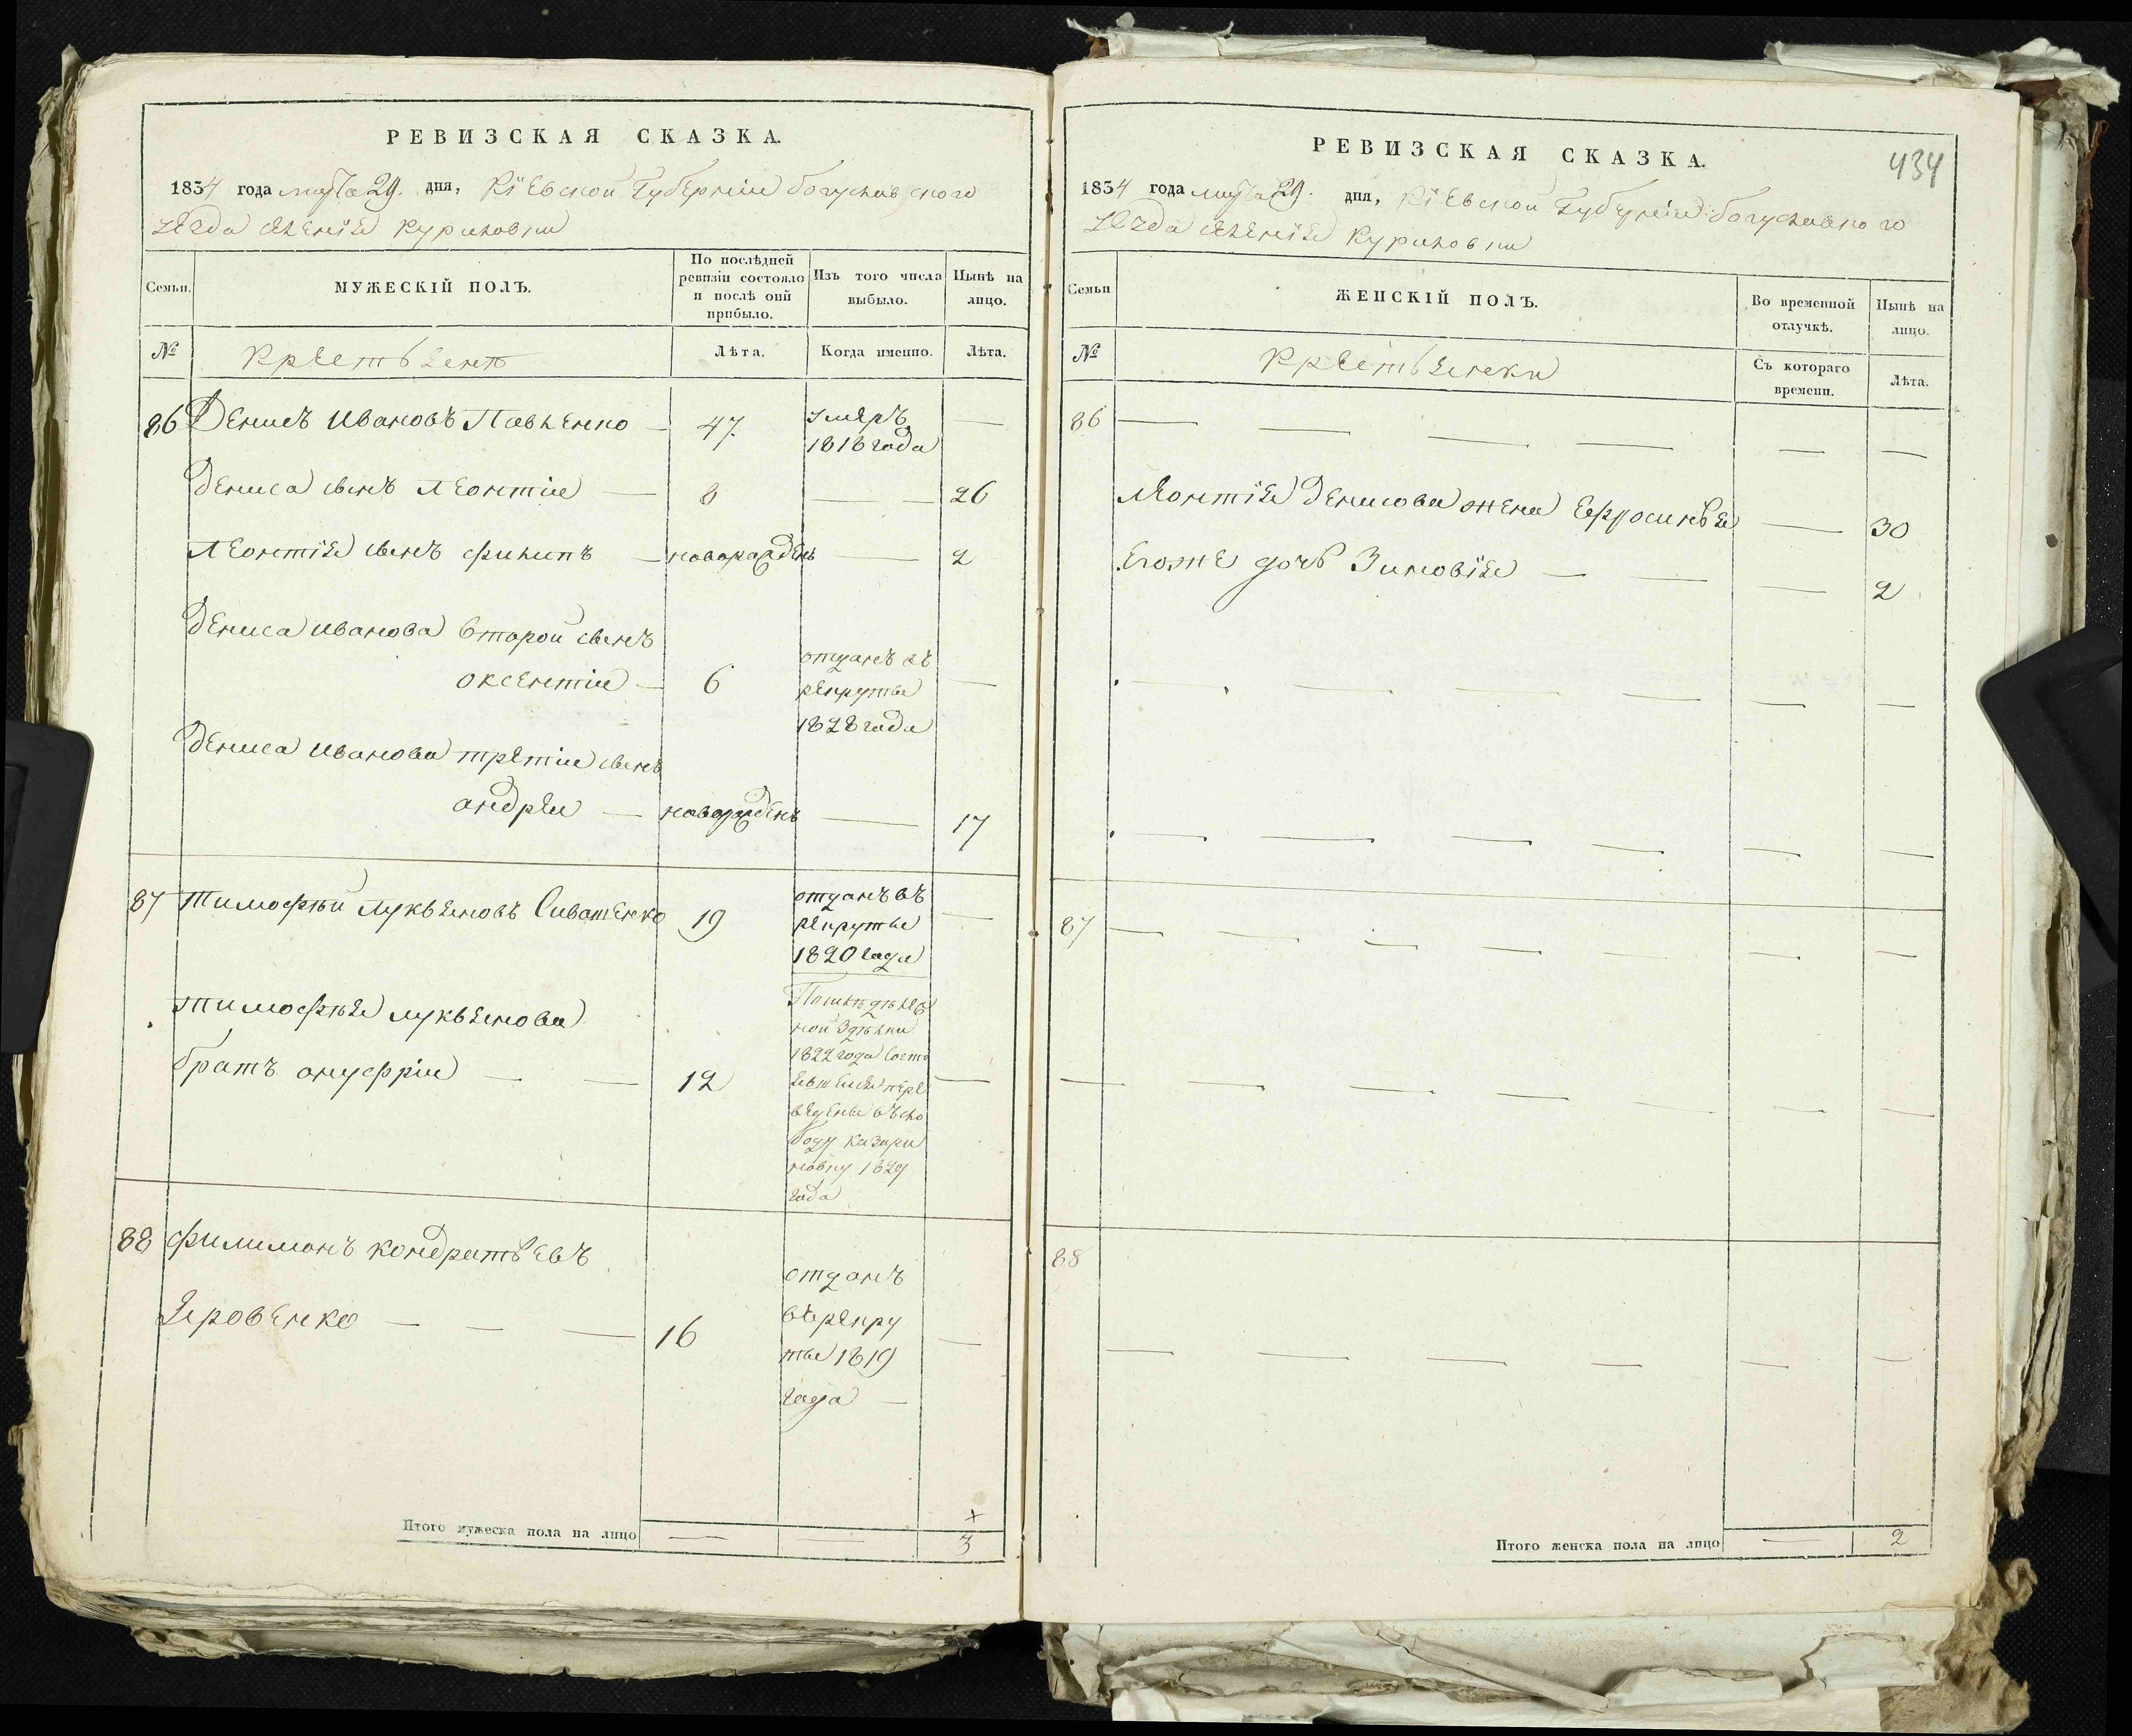 РЕВИЗСКАЯ СКАЗКА.
1834 года марта 29. дня, Кіевской Губерніи богуславского
уезда селенія Куриловки
Семьи.
МУЖЕСКІЙ ПОЛЪ.
По послѣдней ревизіи состояло и послѣ оній прибыло.
Изъ того числа выбыло.
Нынѣ на лицо.
№
Крестьянъ
Лѣта.
Когда именно.
Лѣта.
86 Денисъ Ивановъ Павленко — 47. умеръ 1818 года —
Дениса сынъ Леонтіи — 8 — — 26
Леонтія сынъ филипъ — новорожденъ — 2
Дениса иванова второй сынъ
оксентіи — 6 отданъ въ рекруты 1828 года —
Дениса иванова третіи сынъ
андреи — новорожденъ — 17
87 тимофѣй лукьяновъ Сивашенко 19 отданъ въ рекруты 1820 года —
тимофѣя лукьянова
братъ ануфріи — — 12
1822 года
переведены въ сло
боду казари
новку 1829
года —
88 филимонъ кондратьевъ
Яровенко — — — 16
отданъ
въ рекру
ты 1819
года —
—
Итого мужеска пола на лицо — — 3
РЕВИЗСКАЯ СКАЗКА.
434
1834 года марта 29. дня, Кіевской Губерніи богуславского
уезда селенія Куриловки
Семьи
ЖЕНСКІЙ ПОЛЪ.
Во временной отлучкѣ.
Нынѣ на лицо.
№
Крестьянски
Съ котораго времени.
Лѣта.
86 — — — — — —
Леонтія Денисова жена Ефросинья — 30
Егоже дочь Зиновія — — — 2
87 — — — — — — —
88
— — — — — —
Итого женска пола на лицо — 2